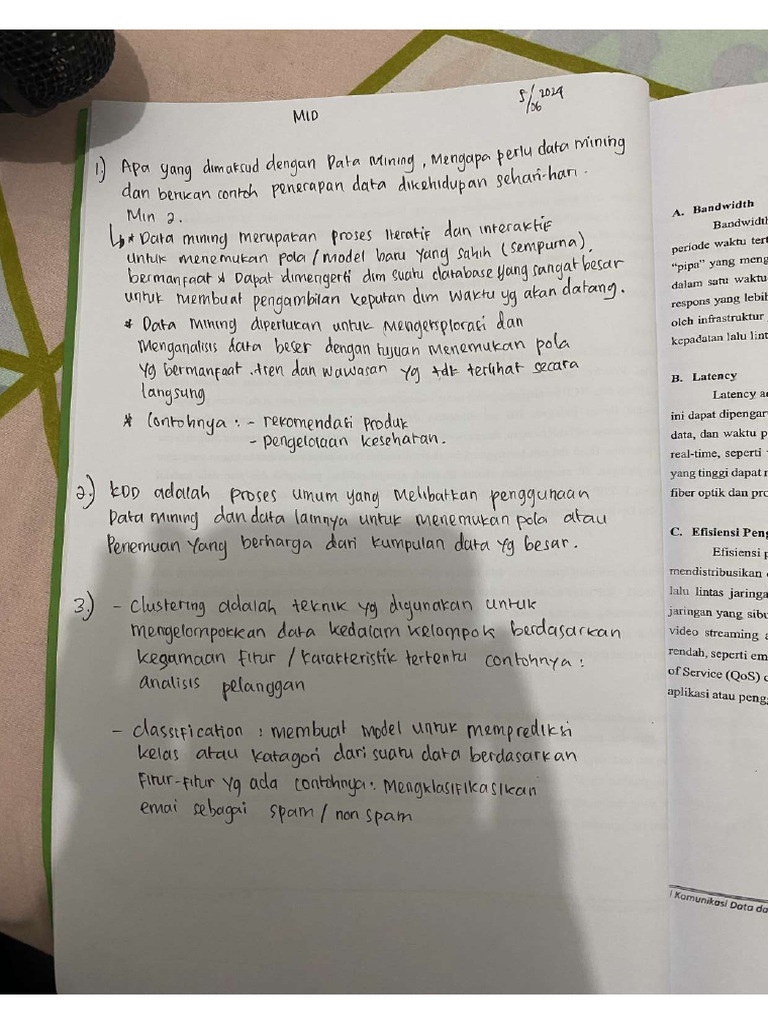 MID
5/2024
/06
1.) Apa yang dimaksud dengan Data Mining, Mengapa perlu data mining
dan berikan contoh penerapan data dikehidupan sehari-hari.
Min 2.
* Data mining merupakan proses Iteratif dan interaktif
untuk menemukan pola / model baru yang sahih (sempurna),
bermanfaat & Dapat dimengerti dlm suatu database yang sangat besar
untuk membuat pengambilan keputan dlm waktu yg akan datang.
* Data Mining diperlukan untuk Mengeksplorasi dan
Menganalisis data beser dengan tujuan menemukan pola
yg bermanfaat . tren dan wawasan yg tdk terlihat secara
langsung
* Contohnya : - rekomendasi produk
- pengelolaan kesehatan.
2.) KDD adalah proses umum yang melibatkan penggunaan
Data mining dan data lainnya untuk menemukan pola atau
Penemuan yang berharga dari kumpulan data yg besar.
3.) - Clustering adalah teknik yg digunakan untuk
mengelompokkan data kedalam kelompok berdasarkan
kegamaan fitur / karakteristik tertentu contohnya :
analisis pelanggan
- classification : membuat model untuk memprediksi
kelas atau katagori dari suatu data berdasarkan
fitur-fitur yg ada contohnya : Mengklasifikasikan
emai sebagai spam / non spam
A. Bandwidth
periode waktu
"pipa" yang
dalam satu waktu
respons yang
oleh infrastruktur
kepadatan lalu
B. Latency
Latency
ini dapat
data, dan waktu
real-time, seperti
yang tinggi dapat
fiber optik dan
C. Efisiensi
Efisiensi
mendistribusikan
lalu lintas
jaringan yang
video streaming
rendah, seperti
of Service (QoS)
aplikasi atau
Komunikasi Data